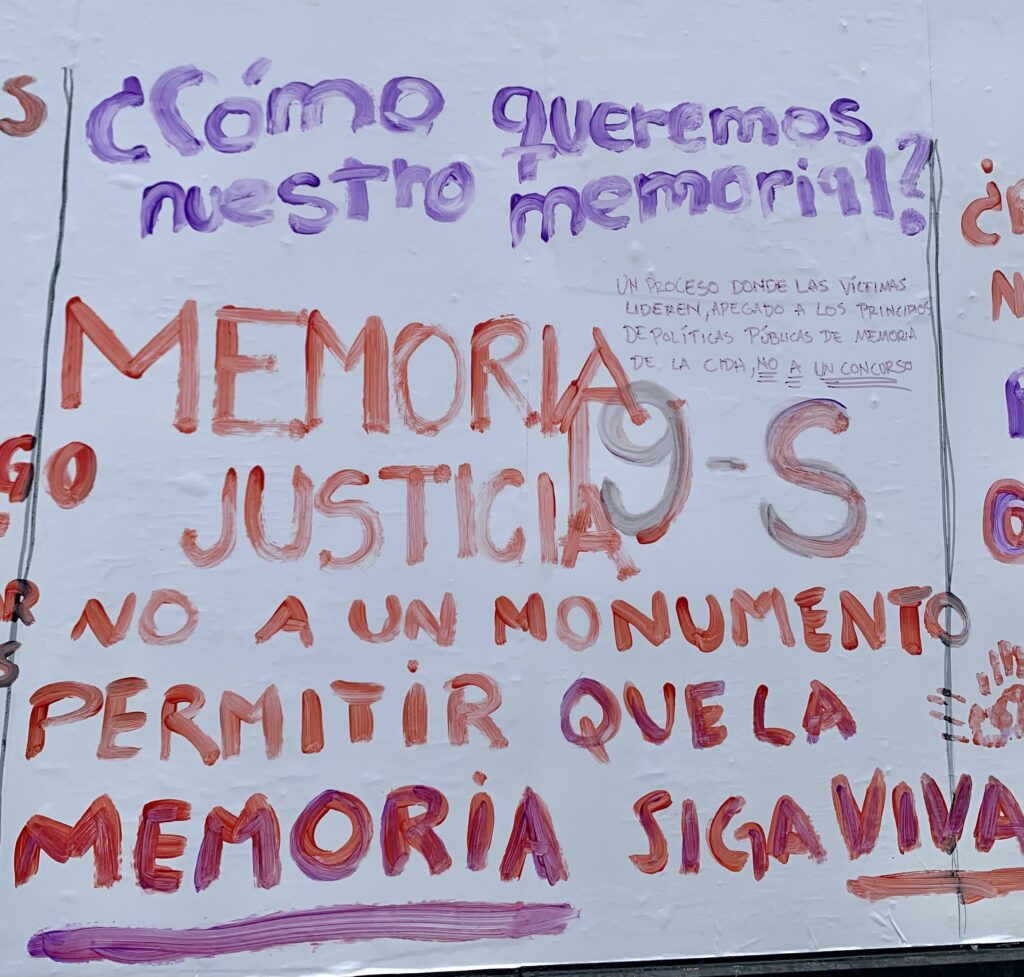 ¿Cómo queremos
nuestro memorial?
UN PROCESO DONDE LAS VÍCTIMAS
LIDEREN, APEGADO A LOS PRINCIPIOS
DE POLÍTICAS PÚBLICAS DE MEMORIA
DE LA CIDH, NO A UN CONCURSO
MEMORIA
19-S
JUSTICIA
NO A UN MONUMENTO
PERMITIR QUE LA
MEMORIA SIGA VIVA